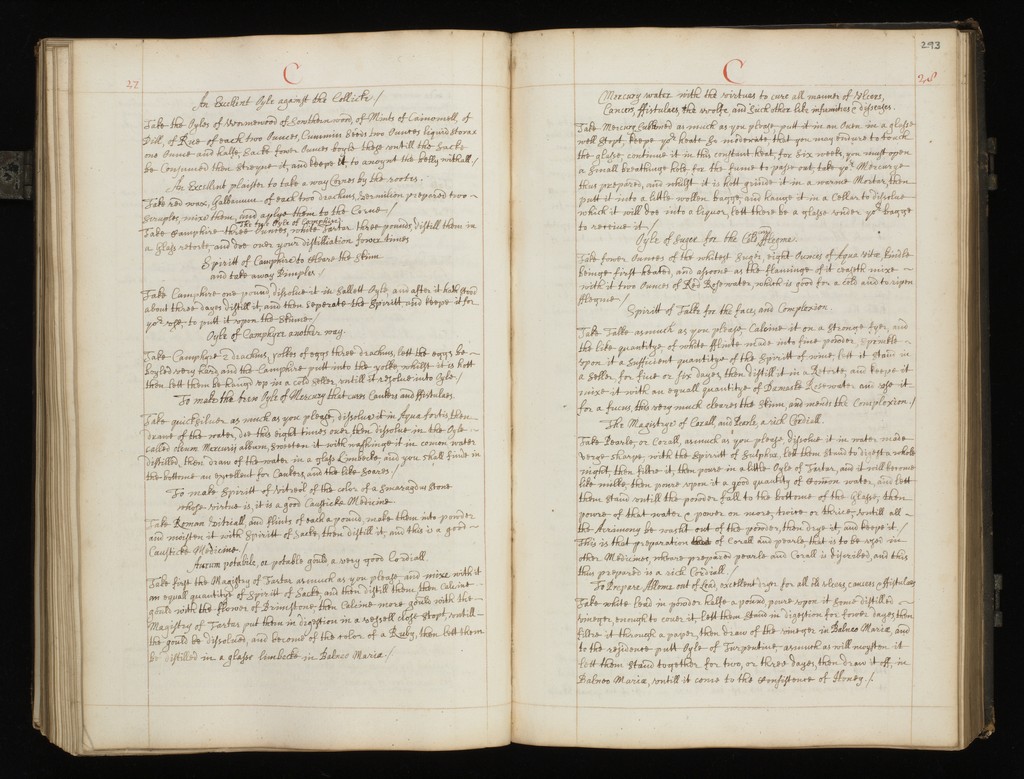 27
C
An Excellent Oyle against the Collicke /
Take the Oyles of Wormewood of Southernwood, of Mints of Camomell, of
Dill, of Rue of each two Ounces, Cummin seeds two Ounces liquid storax
one Ounce and halfe, Sacke fower Ounces boyle these untill the Sacke
be Consumed then streyne it, and keepe it to anoynt the belly withall /
An Excellent plaister to take away Cornes by the rootes.
Take red wax, Galbanum of each two drachms, Vermilion prepared two
Scruples, mixe them, and aplye them to the Corne /
The true Oyle of Camphire
Take Camphire three Ounces, white Tartar three pounds, distill them in
a Glass retorte, and doe over your distilliation fower times
Spiritt of Camphire to Cleare the Skinn
and take away Pimples /
Take Camphire one pound, dissolve it in Sallett Oyle, and after it hath stood
about three dayes distill it, and then seperate the Spiritt and keepe it for
yor use, to putt it upon the Skinne /
Oyle of Camphyre another way.
Take Camphyre 2 drachms, yolkes of eggs three drachms, lett the eggs be
boyled very hard, and the Camphire putt into the yolks whilst it is hott
then lett them be hangd up in a cold seller, untill it resolve into Oyle /
To make the trew Oyle of Mercury that cures Cankers and ffistulaes.
Take quicksilver as much as you please, dissolve it in Aqua fortis then
drawe of the water, doe this eight times over then dissolve in the Oyle
called Oleum Mercurij album, sweeten it with washinge it in comon water
distilled, then draw of the water in a glass Limbecke, and you shall finde in
the bottome an excellent for Cankers, and the like Soares /
To make Spiritt of Vitreoll of the color of a Smaragdin Stone
whose virtue is, it is a good Causticke Medicine
Take Roman Vitrioll, and flints of each a pound, make them into powder
and moisten it with Spiritt of Sacke, then distill it, and this is a good
Causticke Medicine /
Aurum potabile, or potable gould, a very good Cordiall
Take first the Magistry of Tartar as much as you please, and mixe with it
an equall quantitye of Spirit of Sacke, and then distill them, then Calcine
gould with the flower of Brimstone, then Calcine more gould with the
Magistry of Tartar put them in digestion in a vessell close stopt, untill
the gould be dissolved, and become of the color of a Ruby, then lett them
be distilled in a glasse Limbecke in Balneo Mariæ /
293
28
C
Mercury water with the virtues to cure all manner of Ulcers,
Cancers, ffistulaes, the wolfe, and such other like infirmities & diseases.
Take Mercury as much as you please putt it in an Oven in a glasse
well stopt, keepe yor heate so moderate, that you may endure to touch
the glasse, continue it in this constant heat, for Six week, you must open
a small breathinge hole for the fume to passe out, take yor Mercurye
thus prepared, and whilst it is hott grinde it in a warme Mortar, then
putt it into a little wollen bagge, and hange it in a Celler to dissolve
which it will doe into a liquer, lett there be a glasse under yor bagge
to receive it /
Oyle of Suger for the Cold and fflegme.
Take fower Ounces of the whitest Suger, eight Ounces of Aqua Vitæ kindle
beinge first heated, and assoone as the flaminge of it ceaseth mixe
with it two Ounces of Red Rosewater, which is good for a cold and to ripen
fflegme /
Spiritt of Talke for the face, and Complexion.
Take Talke asmuch as you please, Calcine it on a stronge fyer, and
the like quantitye of white fflints made into fine powder,
upon it a sufficient quantitye of the Spiritt of wine, lett it stand in
a Seller, for five or six dayes, then distill it in a Retorte, and keepe it
mixe it with an equall quantitye of Damaske Rosewater and use it
for a fucus, this very much cleares the Skinn, and mends the Complexion /
The Magistrye of Corall, and Pearle, a rich Cordiall.
Take Pearle, or Corall, asmuch as you please, dissolve it in water made
verye sharpe, with the Spiritt of Sulphur, lett them stand to digest a whole
night, then filtre it, then powre in a little Oyle of Tartar, and it will become
like milke, then powre upon it a good quantity of Common water, and lett
them stand untill the powder fall to the bottome of the Glasse, then
powre of that water & power on more, twice or thrice, untill all
the Acrimony be washt out of the powder, then drye it, and keepe it /
This is that preparation of Corall and pearle that is to be used in
other Medicines, where prepared pearle and Corall is discribed, and this
thus prepared is a rich Cordiall /
To Prepare Allome out of Lead, excellent drye for all Ulcers, cancers, & ffistulaes
Take white lead in powder halfe a pound, powre upon it some distilled
vineger enough to cover it, lett them stand in digestion for fower dayes then
filtre it through a paper, then draw of the vineger in Balneo Mariæ, and
to the residence putt Oyle of Turpentine, asmuch as will moysten it
lett them stand together for two, or three dayes, then draw it off, in
Balneo Mariæ, untill it come to the Consistence of Honey /